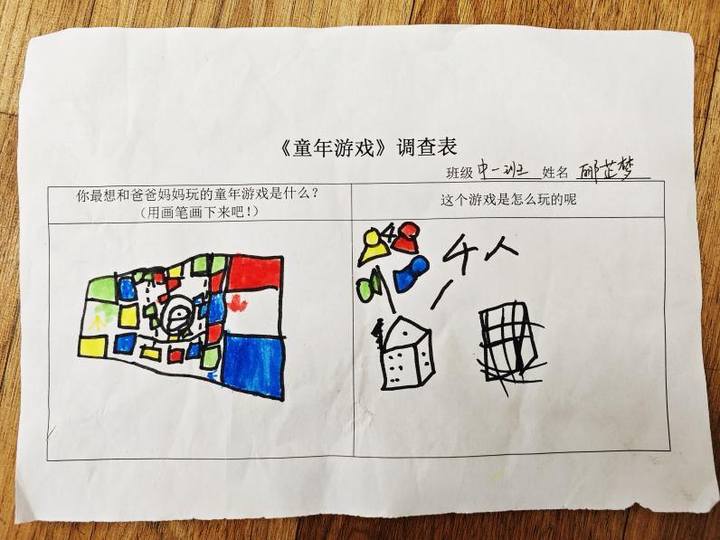 《童年游戏》调查表
班级 中一班 姓名 郁芷梦
你最想和爸爸妈妈玩的童年游戏是什么？
（用画笔画下来吧！）
这个游戏是怎么玩的呢
4
4人